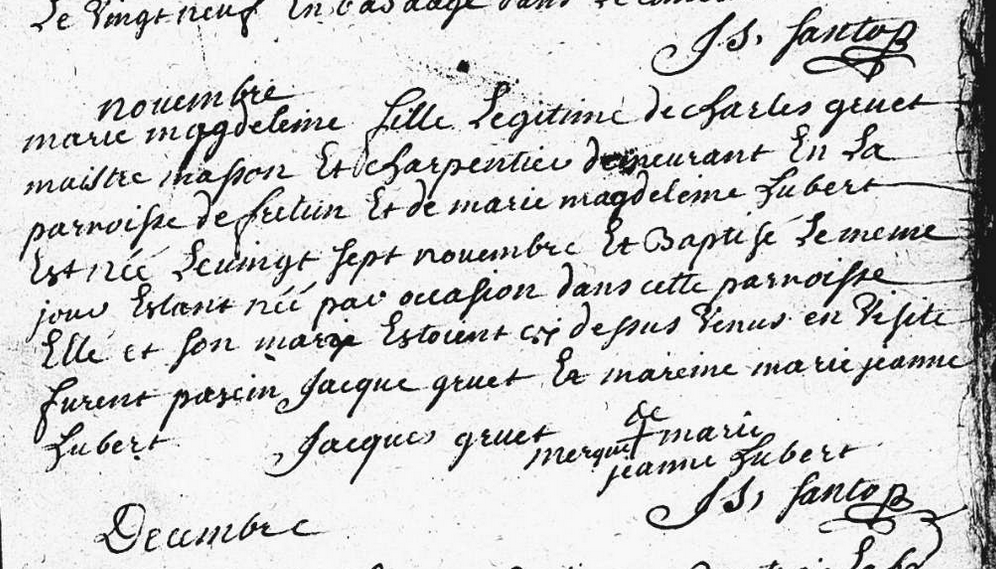 Le vingt neuf En bas aage dans
J S, Santop
novembre
marie magdeleine fille Legitime de charles gruet
maistre masson Et charpentier demeurant En La
parroisse de fretun Et de marie magdeleine Lubert
Est née Le vingt sept novembre Et Baptisé Le meme
jour Estant née par occasion dans cette parroisse
Elle et son marie Estoient ci dessus venus en visite
furent parein Jacque gruet Et mareine marie jeanne
Lubert Jacques gruet merque de + marie
jeanne Lubert
J S, Santop
Decembre